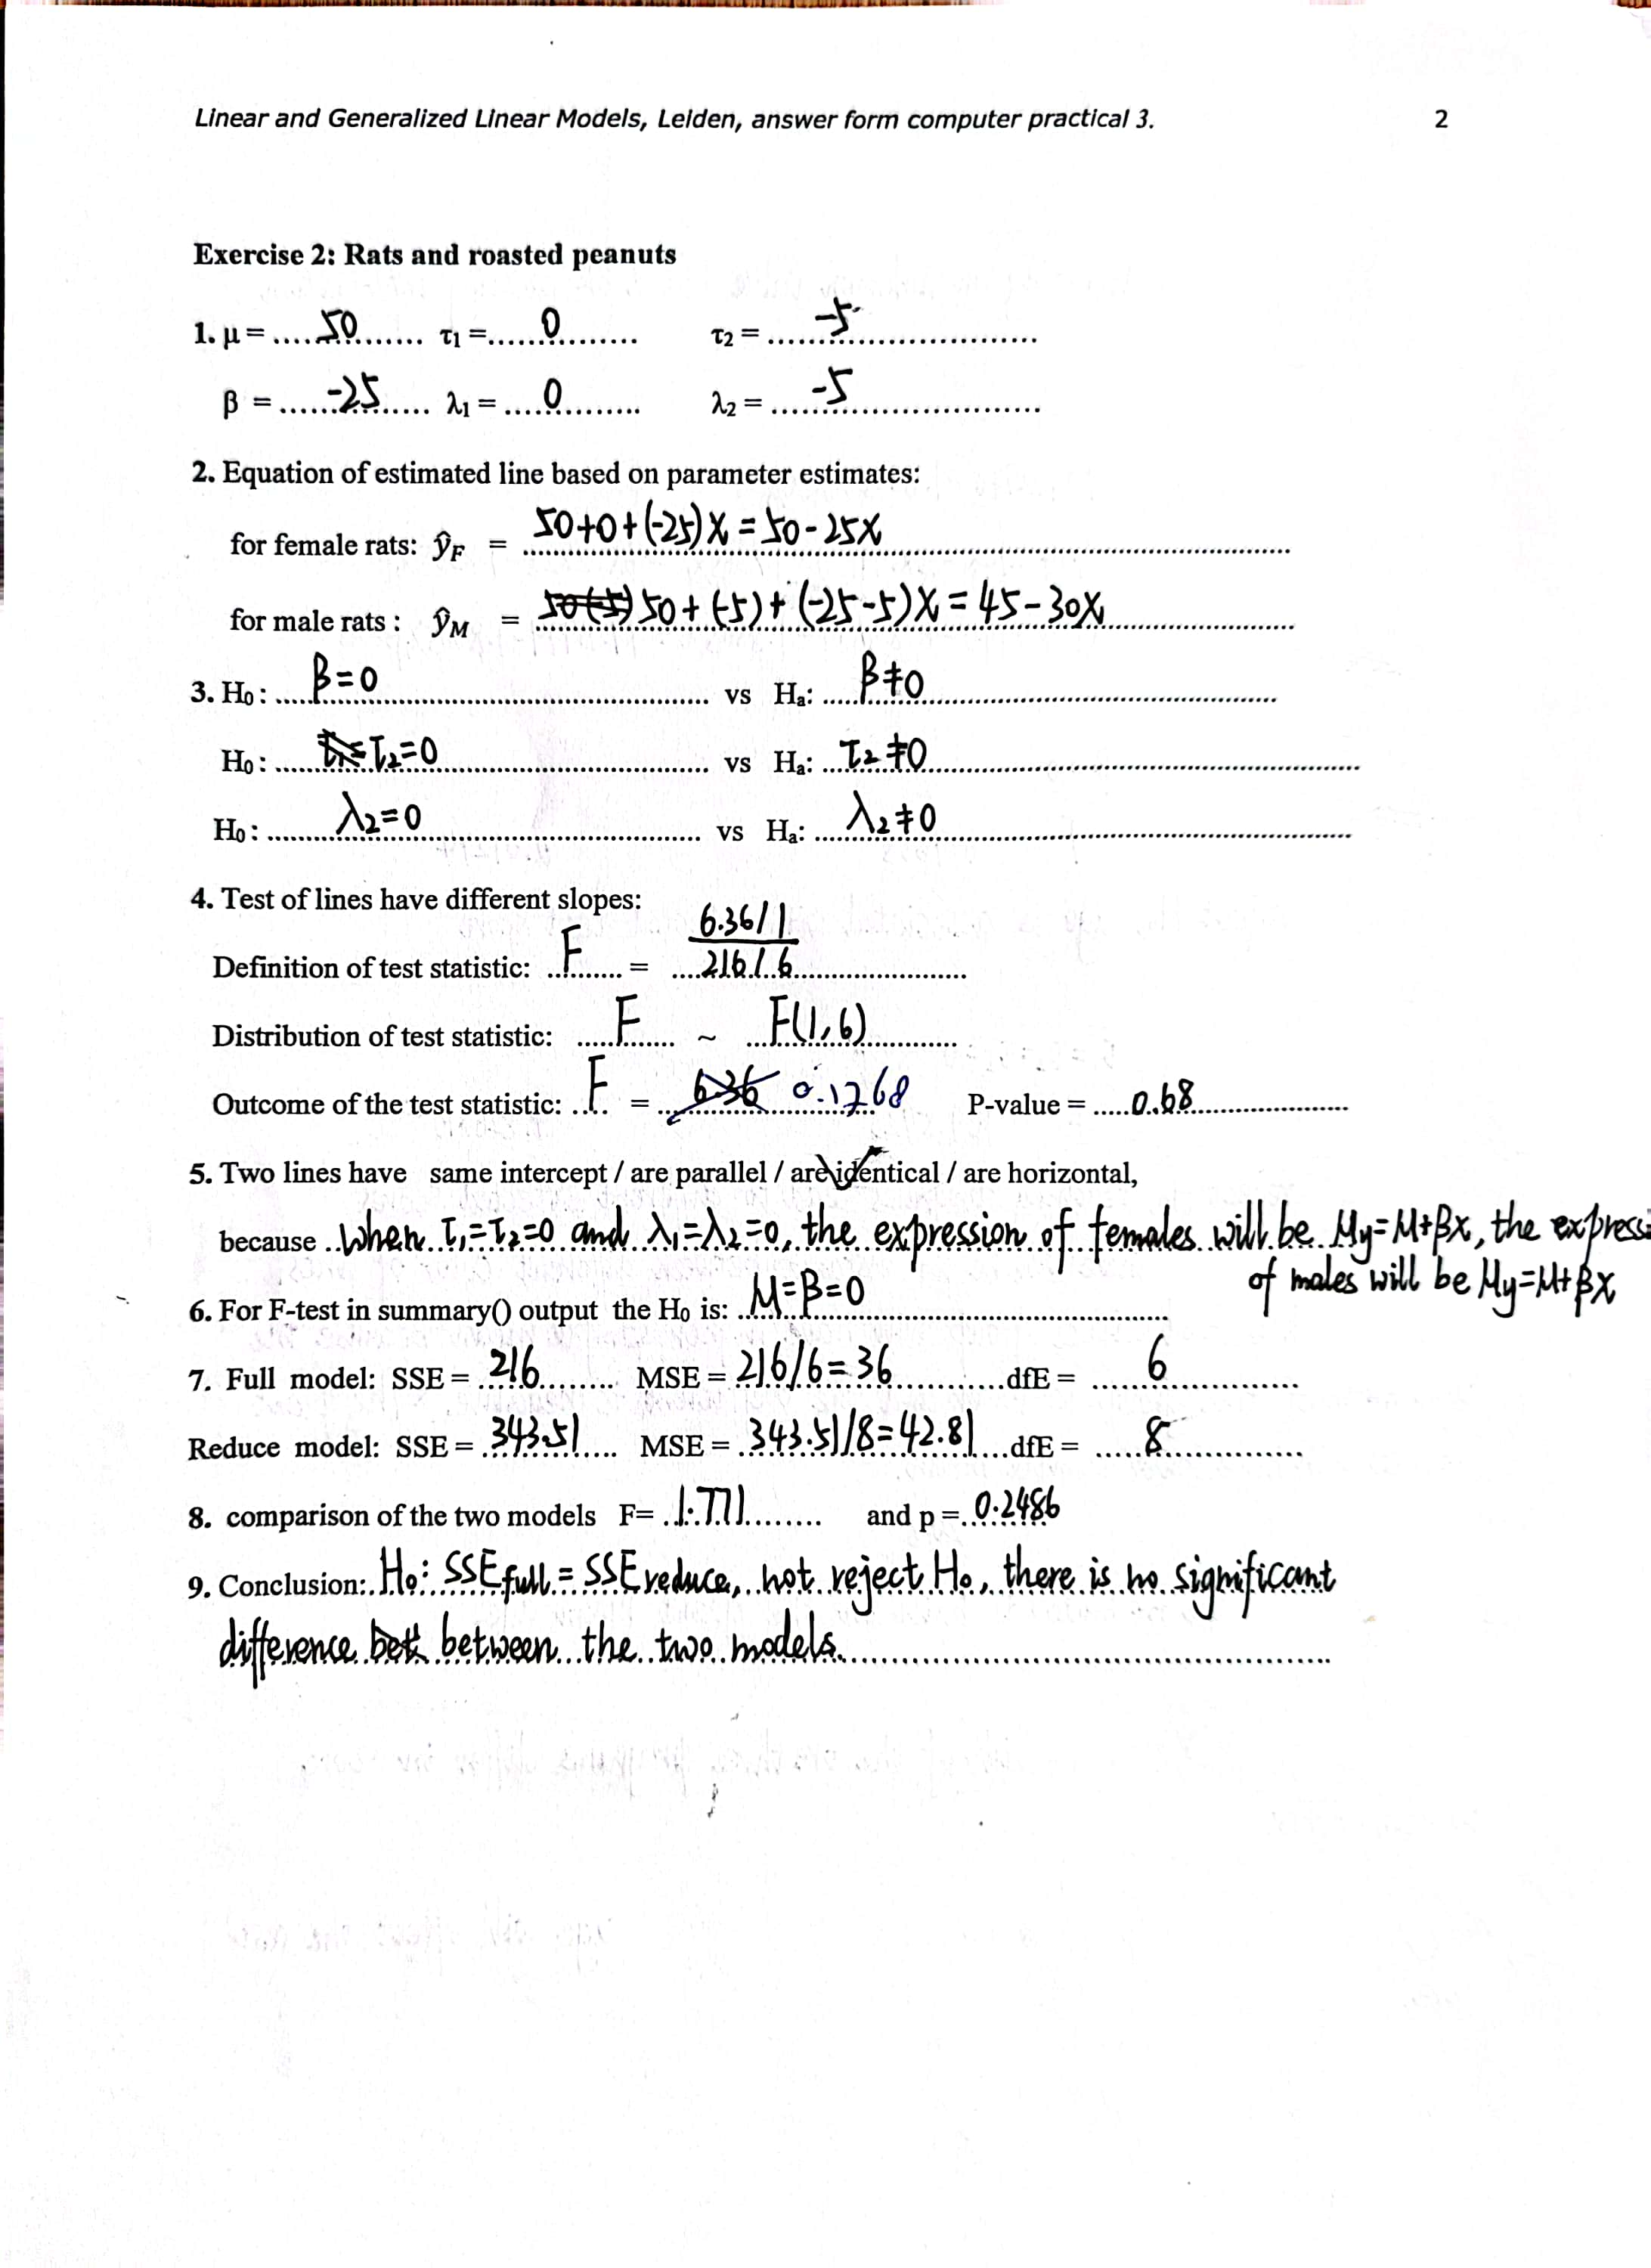 Linear and Generalized Linear Models, Leiden, answer form computer practical 3. 2
Exercise 2: Rats and roasted peanuts
1. μ = ....50........ τ1 =......0......... τ2 = ...-5...
β = ......-25...... λ1 = ....0......... λ2 = ...-5...
2. Equation of estimated line based on parameter estimates:
for female rats: ŷF = 50+0+(-25)X = 50-25X
for male rats : ŷM = 50+(-5)+(-25-5)X = 45-30X
3. H0 : ....β=0.... vs Ha: ....β≠0....
H0 : ....τ2=0.... vs Ha: ...τ2≠0...
H0 : ....λ2=0.... vs Ha: ....λ2≠0....
4. Test of lines have different slopes:
6.36/1
Definition of test statistic: ..F...... = ....216/6....
Distribution of test statistic: .....F...... ~ ...F(1,6)...
Outcome of the test statistic: ..F.. = ..6.36 0.1768 P-value = .....0.68....
5. Two lines have same intercept / are parallel / are identical / are horizontal,
because ..When τ1=τ2=0 and λ1=λ2=0, the expression of females will be My=M+βx, the express
of males will be My=M+βx
6. For F-test in summary() output the H0 is: ..M=β=0....
7. Full model: SSE = ..216........ MSE = 216/6=36...........dfE = ....6....
Reduce model: SSE = .343.51.... MSE = .343.51/8=42.81...dfE = .....8....
8. comparison of the two models F= ..1.771........ and p =..0.2486
9. Conclusion:.H0: SSEfull = SSEreduce, not reject H0, there is no significant
difference bet between the two models.....